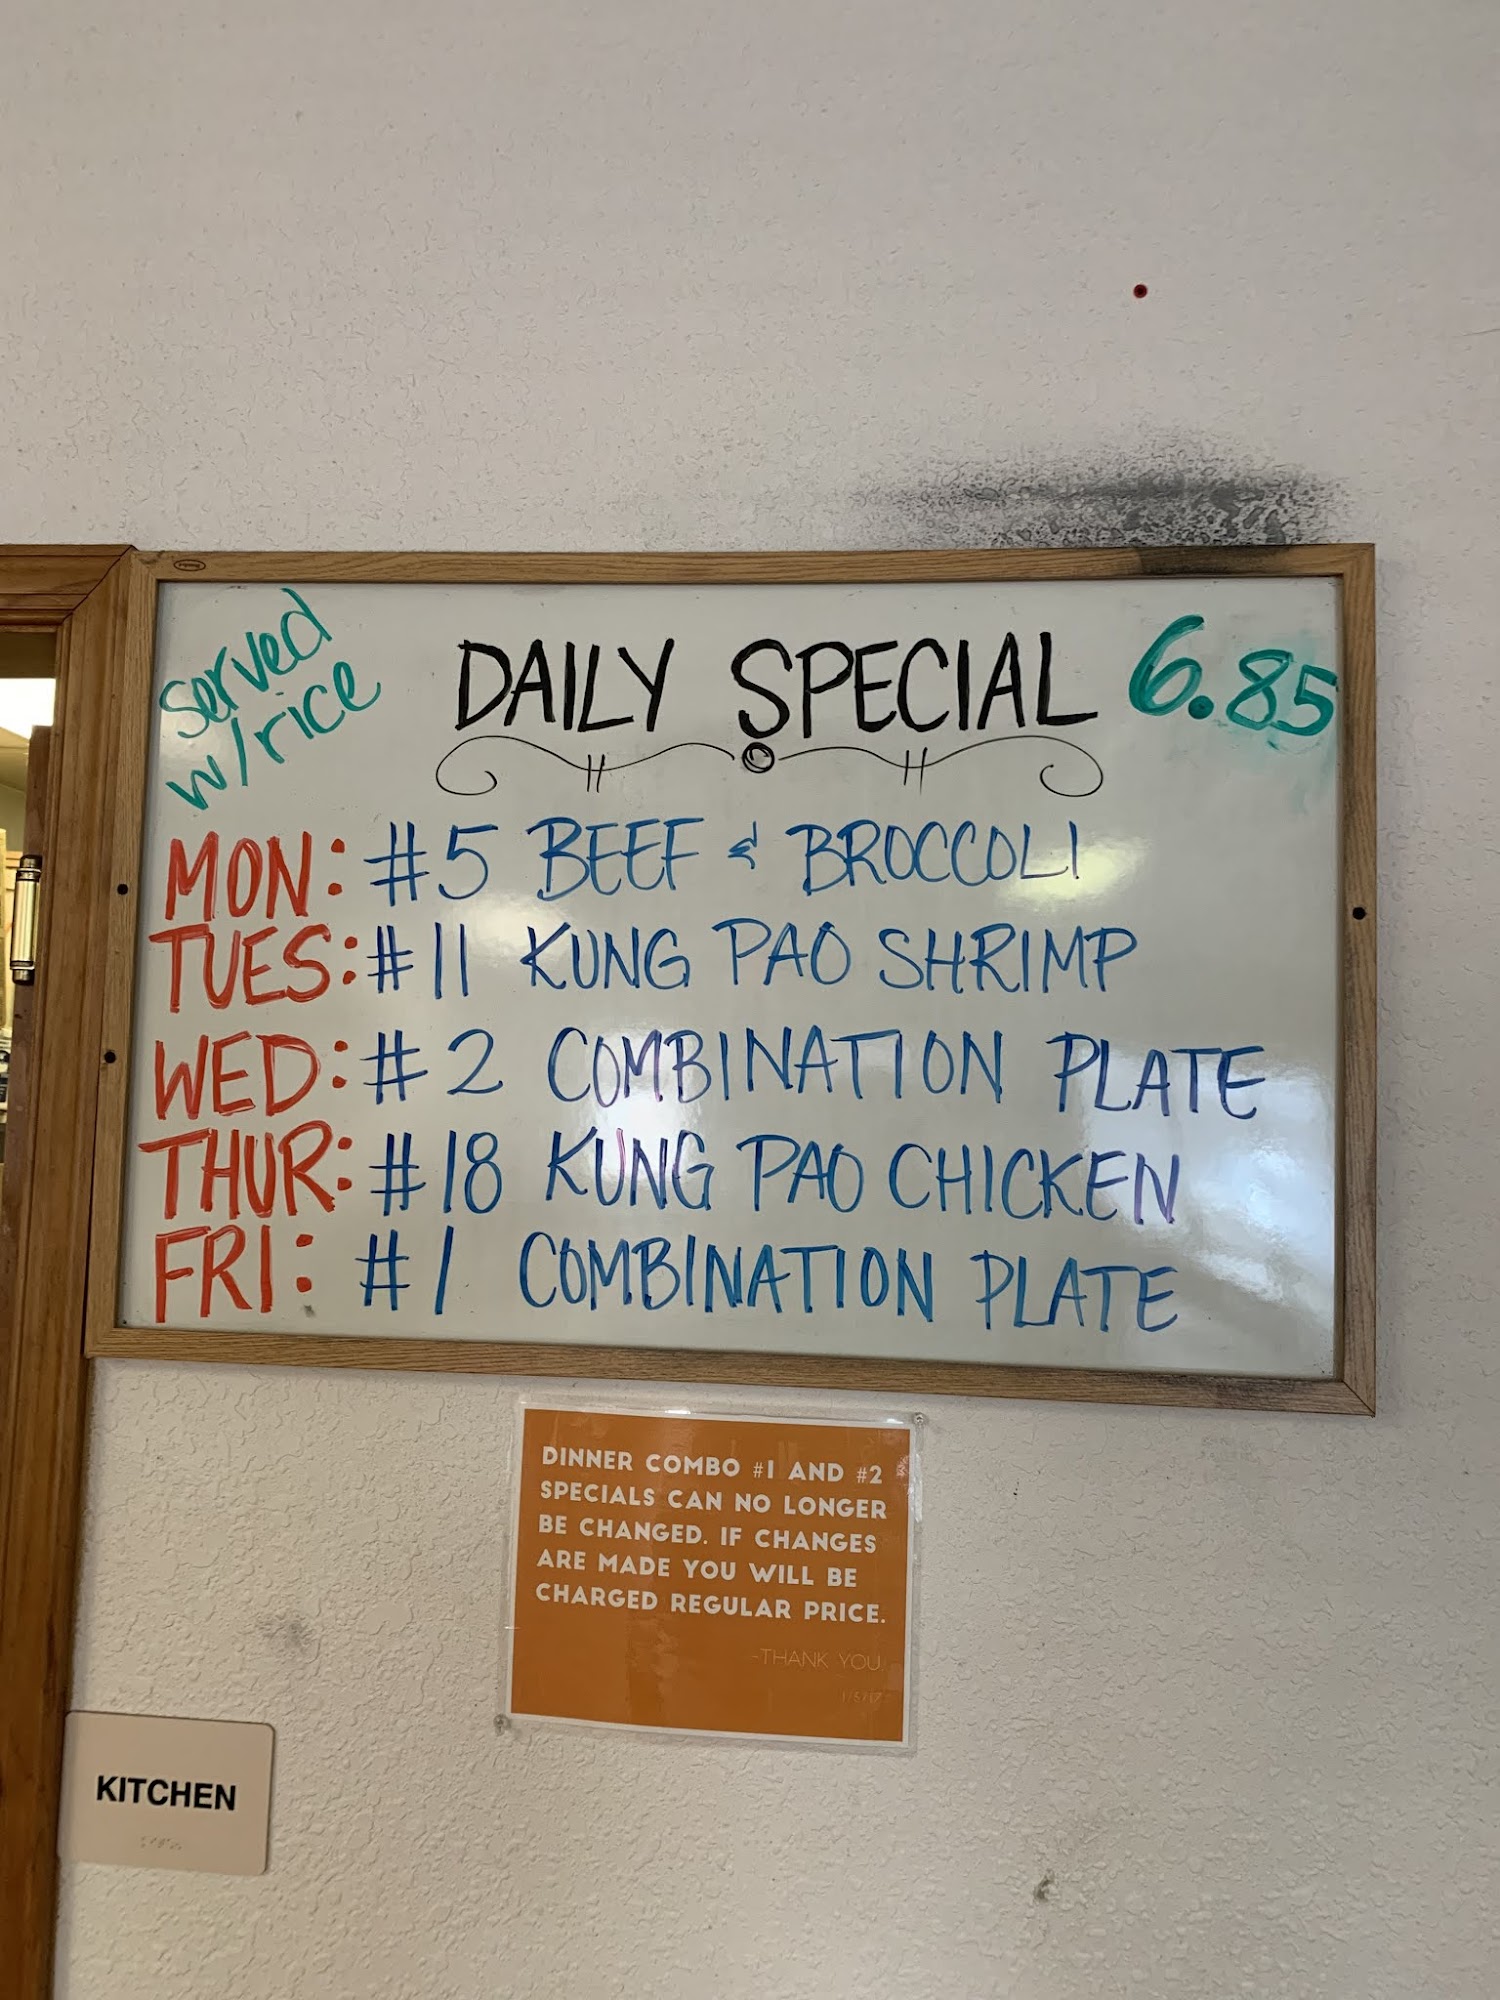 Served
w/rice
DAILY SPECIAL 6.85
MON: #5 BEEF & BROCCOLI
TUES: #11 KUNG PAO SHRIMP
WED: #2 COMBINATION PLATE
THUR: #18 KUNG PAO CHICKEN
FRI: #1 COMBINATION PLATE
DINNER COMBO #1 AND #2
SPECIALS CAN NO LONGER
BE CHANGED. IF CHANGES
ARE MADE YOU WILL BE
CHARGED REGULAR PRICE.
-THANK YOU
1/5/17
KITCHEN